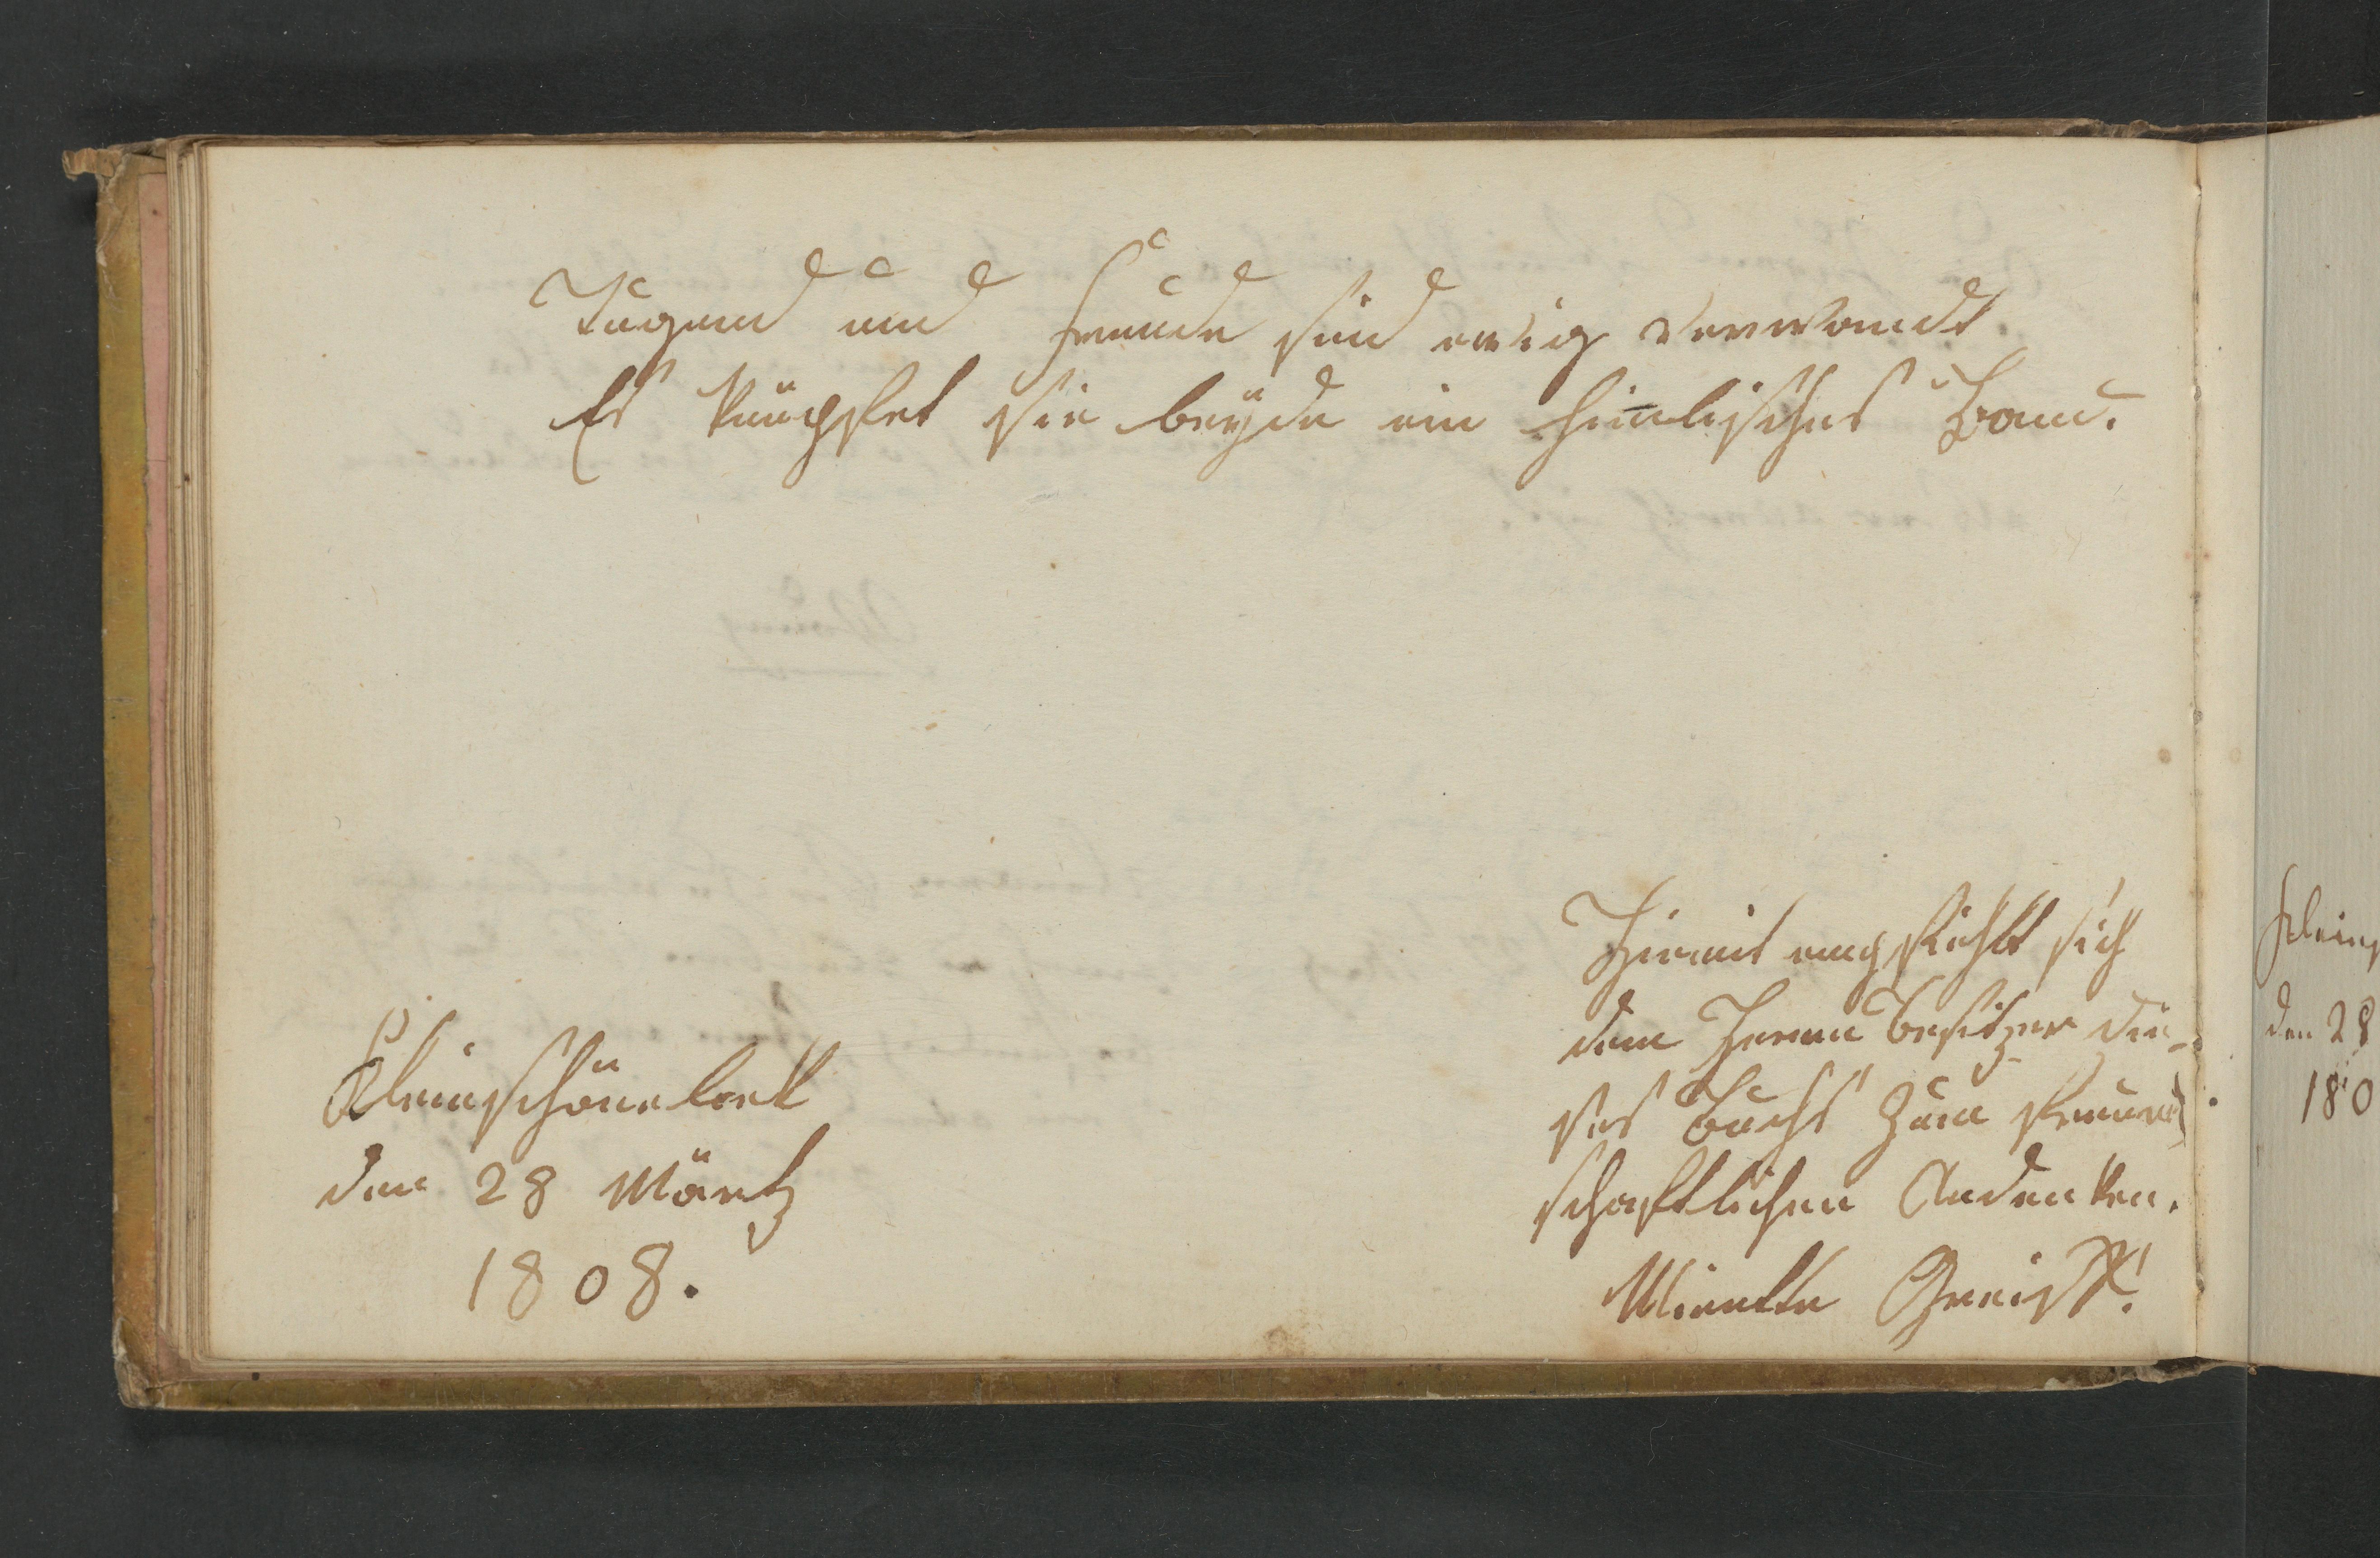 Tugend und Freude sind ewig verwandt.
Es knüpfet sie beyde ein himlisches Band.
Hiermit empfiehlt sich
dem Herrn Besitzer die-
ses Buchs zum freund
schaftlichen Andenken.
Kleinschönebek
den 28 Märtz
1808.
den 28
180